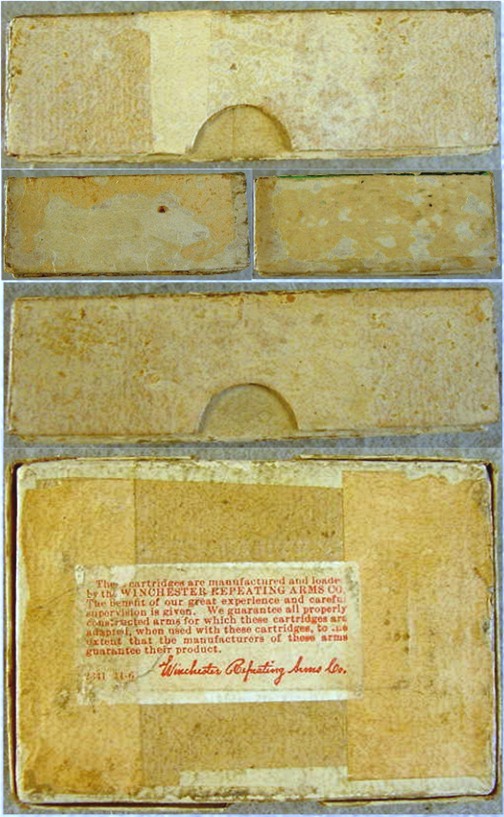 The cartridges are manufactured and loade
by the WINCHESTER REPEATING ARMS CO.
The benefit of our great experience and carefu
supervision is given. We guarantee all properly
constructed arms for which these cartridges are
adapted, when used with these cartridges, to
extent that the manufacturers of these arms
guarantee their product.
Winchester Repeating Arms Co.